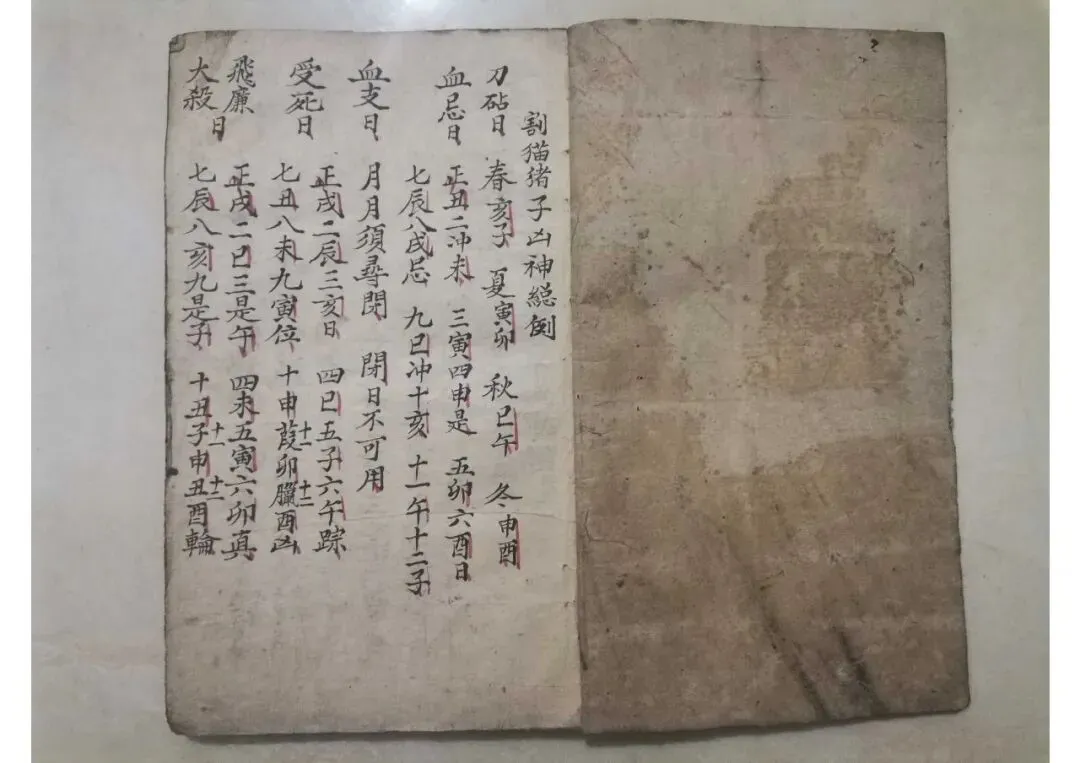 割猫猪子凶神總例
刀砧日 春亥子 夏寅卯 秋巳午 冬申酉
血忌日 正丑二冲未 三寅四申是 五卯六酉日
七辰八戌忌 九巳冲十亥 十一午十二子
血支日 月月須尋閉 閉日不可用
受死日 正戌二辰三亥日 四巳五子六午踪
七丑八未九寅位 十申十一葭卯十二臘酉凶
飛廉 正戌二巳三是午 四未五寅六卯真
大殺日 七辰八亥九是子 十丑十一子申十二丑酉輪